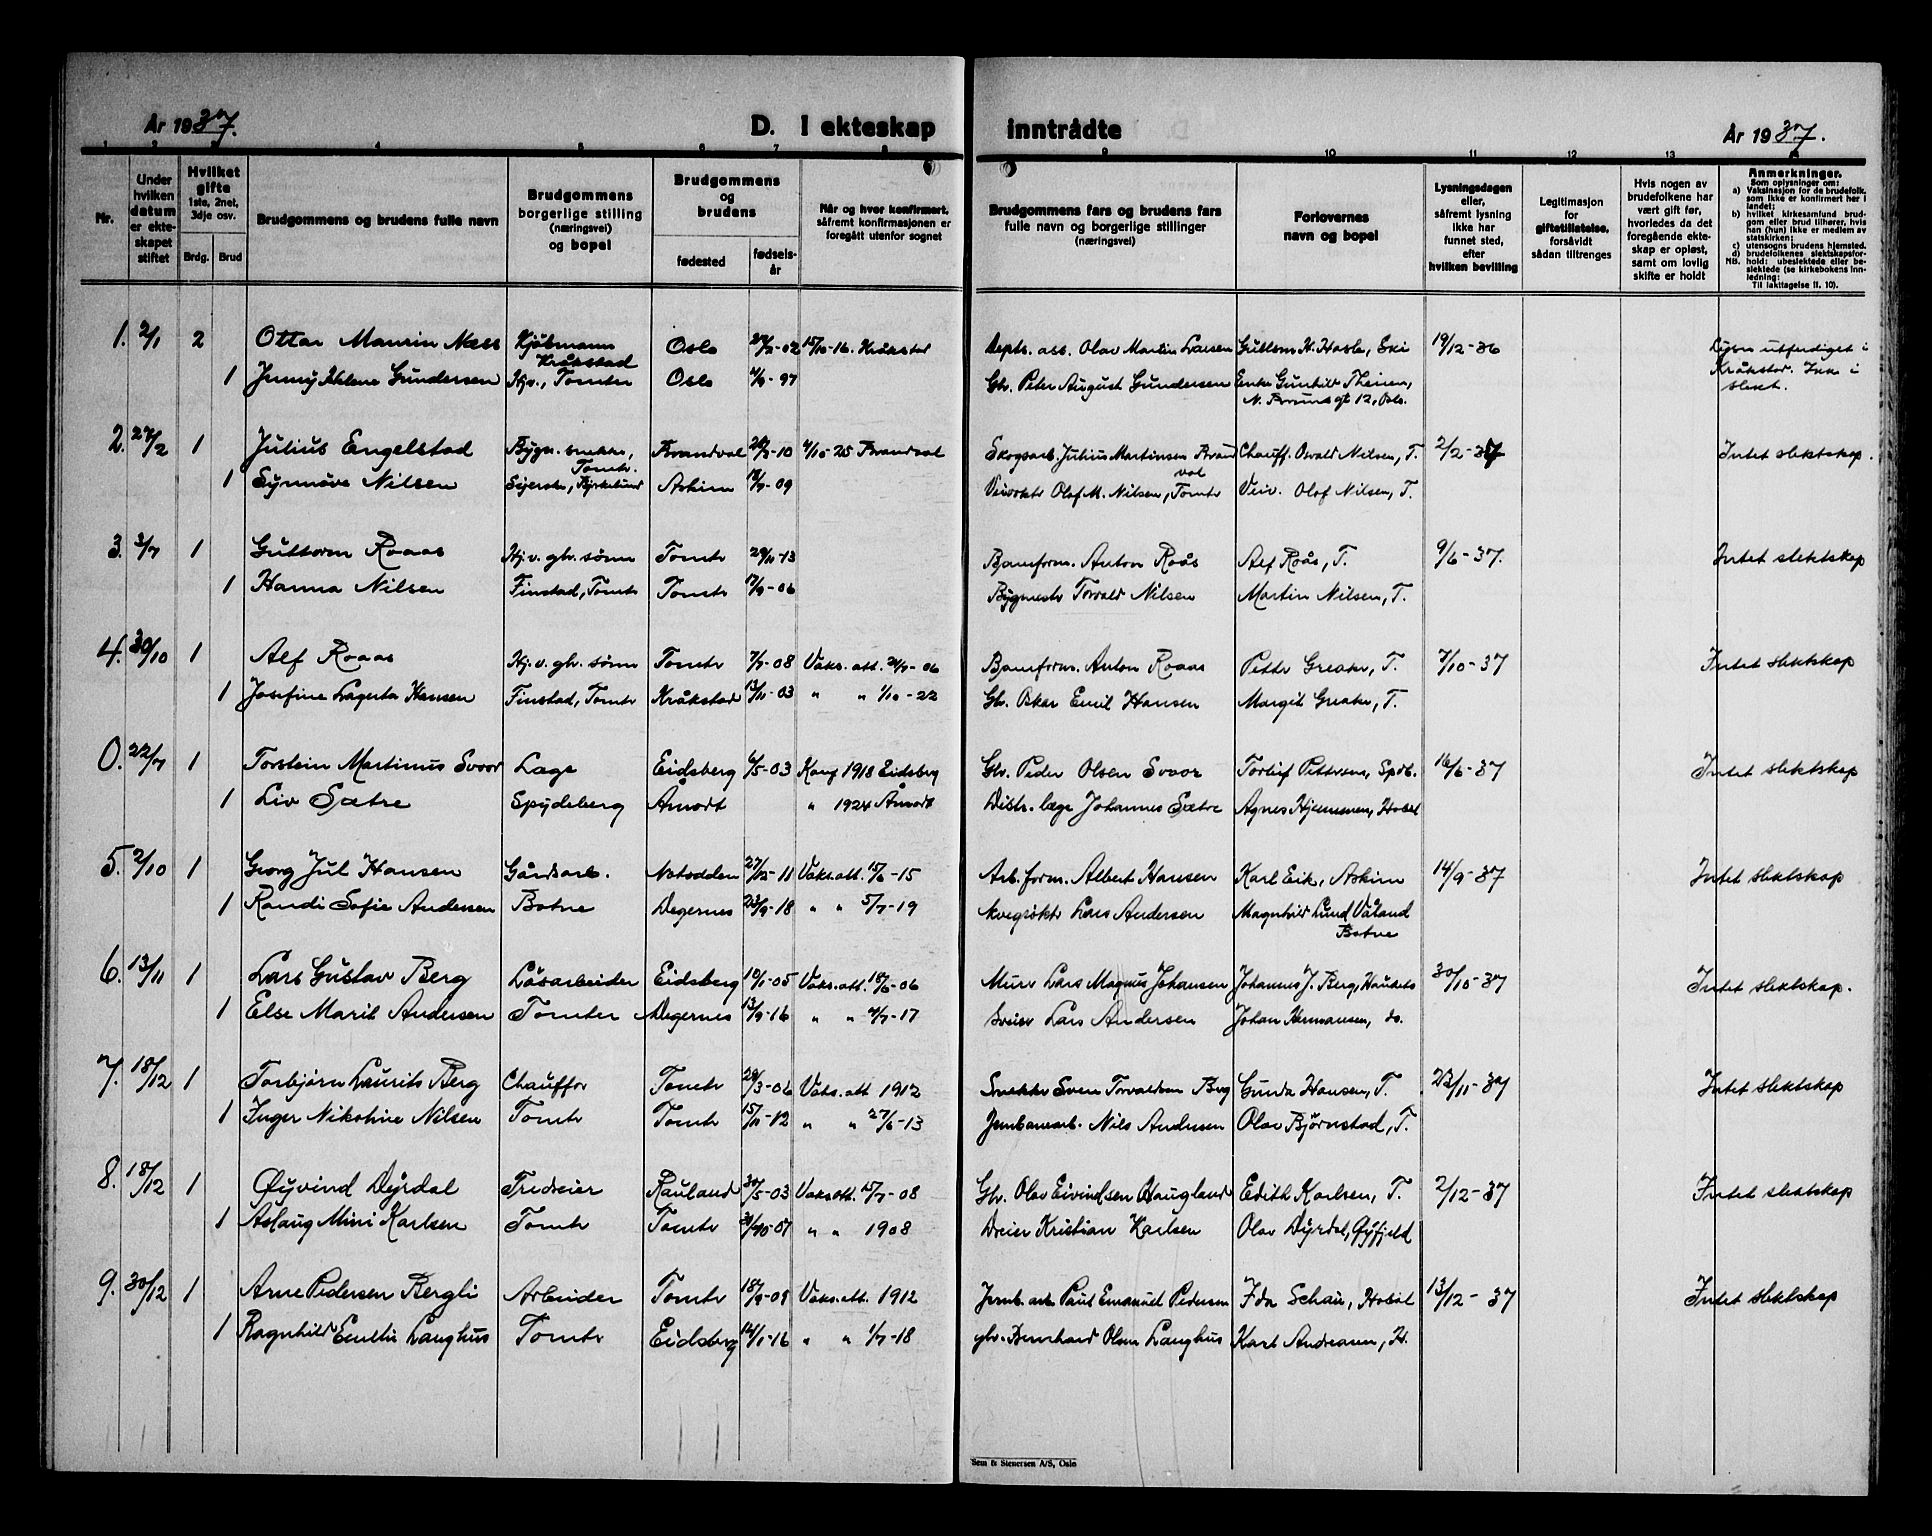 År 1937. D. I ekteskap inntrådte År 1937.
1 2 3 4 5 6 7 8 9 10 11 12 13 14
Nr.
Under hvilken datum er ekteskapet stiftet
Hvilket gifte 1ste, 2net, 3dje osv.
Brdg. Brud
Brudgommens og brudens fulle navn
Brudgommens borgerlige stilling (næringsvei) og bopel
Brudgommens og brudens
fødested
fødselsår
Når og hvor konfirmert, såfremt konfirmasjonen er foregått utenfor sognet
Brudgommens fars og brudens fars fulle navn og borgerlige stillinger (næringsvei)
Forlovernes navn og bopel
Lysningsdagen eller, såfremt lysning ikke har funnet sted, efter hvilken bevilling
Legitimasjon for giftetillatelse, forsåvidt sådan tiltrenges
Hvis nogen av brudefolkene har vært gift før, hvorledes da det foregående ekteskap er opløst, samt om lovlig skifte er holdt
Anmerkninger.
Som oplysninger om:
a) Vaksinasjon for de brudefolk, som ikke er konfirmert her i landet;
b) hvilket kirkesamfund brudgom eller brud tilhører, hvis han (hun) ikke er medlem av statskirken;
c) utensogns brudens hjemsted.
d) brudefolkenes slektskapsforhold: ubeslektede eller beslektede (se kirkebokens innledning:
NB. Til iakttagelse II. 10).
1. 2/1 2 Ottar Maurin Næss Kjøbmann Kråkstad Oslo 02 15/10-16. Kråkstad Olav Martin Larsen Guttorm H. Hasle, Ski 19/12-36 utferdiget i
1 Jenny Helene Gundersen Hv., Tomter Oslo 97 Gbr. Peter August Gundersen Enke Gunhild Theisen, Kråkstad. Ikke i
12, Oslo. slekt.
2. 27/2 1 Julius Engelstad Bygn. snekker, Tomter. Brandval 10 4/10-25 Brandval Skogsarb. Julius Martinsen Brandval Chauff. Osvald Nilsen, T. 2/2-37 Intet slektskap.
1 Synnøve Nilsen Askim 09 Veivokter Olaf M. Nilsen, Tomter Veiv. Olaf Nilsen, T.
3. 3/7 1 Guttorm Roaas Hj. v. gbr. sønn Tomter 29/11-13 Baneform. Anton Roås Alf Roås, T. 9/6-37. Intet slektskap
1 Hanna Nilsen Finstad, Tomter Tomter 06 Bygmester Torvald Nilsen Martin Nilsen, T.
4. 30/10 1 Alf Roaas Hj. v. gbr. sønn Tomter 7/7-08 Vaks. att. 06 Baneform. Anton Roaas Petter Greaker, T. 7/10-37 Intet slektskap
1 Josefine Lagerta Hansen Finstad, Tomter Kråkstad 13/11-03 " " 1/10-22 Gbr. Oskar Emil Hansen Margit Greaker, T.
0. 22/7 1 Torstein Martinus Svoor Læge Eidsberg 6/5-03 Konf 1918 Eidsberg Gbr. Peder Olsen Svoor Torleif Pettersen, Spdb. 16/6-37 Intet slektskap
1 Liv Sætre Spydeberg Åmodt " 1924 Åmodt Distr. læge Johannes Sætre Agnes Hjemmen, Hobøl
5. 2/10 1 Georg Jul Hansen Gårdsarb. Notodden 27/12-11 Vaks. att. 15/6-15 Arb. form. Albert Hansen Karl Eik, Askim 14/9-37 Intet slektskap
1 Randi Sofie Andersen Botne Degernes 23/9-18 " " 5/7-19 Kvegrøkter Lars Andersen Magnhild Lund Våland
Botne
6. 13/11 1 Lars Gustav Berg Løsarbeider Eidsberg 10/1-05 Vaks. att. 18/6-06 Murer Lars Magnus Johansen Johannes J. Berg, 30/10-37 Intet slektskap.
1 Else Marit Andersen Tomter Degernes 13/9-16 " " 4/7-17 Sveiser Lars Andersen Johan Hermansen, do.
7. 18/12 1 Torbjørn Laurits Berg Chauffør Tomter 28/3-06 Vaks. att 1912 Snekker Sven Torvaldsen Berg Gunda Hansen, T. 23/11-37 Intet slektskap
1 Inger Nikoline Nilsen Tomter Tomter 15/11-12 " " 27/6-13 Jernbanearb. Nils Andersen Olav Bjørnstad, T.
8. 18/12 1 Øyvind Dyrdal Tredreier Rauland 30/5-03 Vaks. att. 15/7-08 Gbr. Olav Eivindsen Haugland Edith Karlsen, T. 2/12-37 Intet slektskap
1 Aslaug Mini Karlsen Tomter Tomter 07 " " 1908 Dreier Kristian Karlsen Olav Dyrdal, Øyfjeld
9. 30/12 1 Arne Pedersen Bergli Arbeider Tomter 18/9-09 Vaks. att. 1912 Jernb. arb. Paul Emanuel Pedersen Ida Schau, Hobøl 13/12-37 Intet slektskap
1 Ragnhild Emelie Langhus Tomter Eidsberg 14/1-16 " " 1/7-18 gbr. Bernhard Olsen Langhus Karl Andreasen, H.
Sem & Stenersen A/S, Oslo